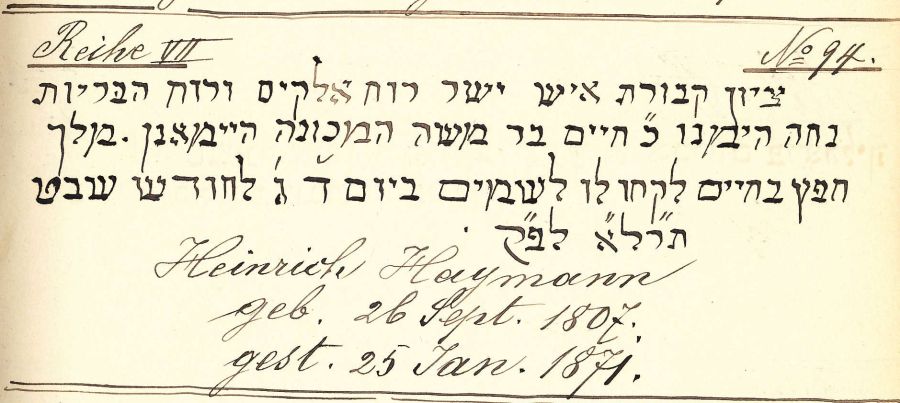 Reihe VII No 94.
ציון קבורת איש ישר רוח אלקים ורוח הבריות
נחה הימנו כ״ חיים בר משה המכונה היימאנן. מלך
חפץ בחיים לקחו לו לשמים ביום ד׳ ג׳ לחודש שבט
תרל״א לפ״ק.
Heinrich Haymann
geb. 26 Sept. 1807.
gest. 25 Jan. 1871.